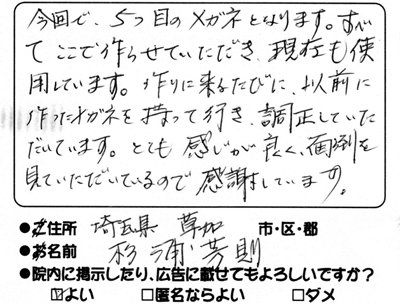 今回で、5つ目のメガネとなります。すべ
てここで作らせていただき、現在も使
用しています。作りに来るたびに、以前に
作ったメガネを持って行き、調正していた
だいています。とても感じが良く、面倒を
見ていただいているので感謝しています。
●ご住所 埼玉県 草加 市・区・郡
●お名前 杉浦芳則
●院内に掲示したり、広告に載せてもよろしいですか?
☑よい □匿名ならよい □ダメ